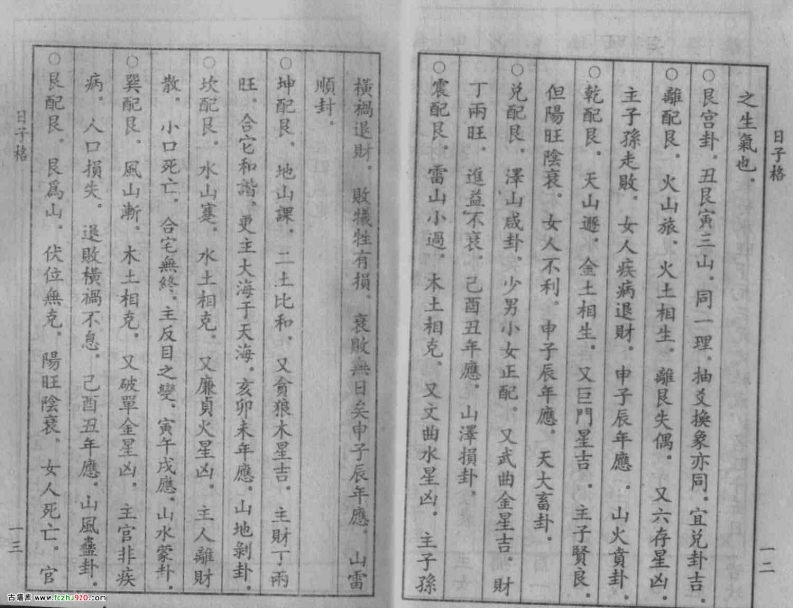 日子格
之生氣也．
○艮宫卦．丑艮寅三山．同一理．抽爻換象亦同．宜兑卦吉．
○離配艮．火山旅．火土相生．離艮失偶．又六存星凶．
主子孫走敗．女人疾病退財．申子辰年應．山火賁卦．
○乾配艮．天山遯．金土相生．又巨門星吉．主子賢良．
但陽旺陰衰．女人不利．申子辰年應．天大畜卦．
○兑配艮．澤山咸卦．少男小女正配．又武曲金星吉．財
丁兩旺．進益不衰．己酉丑年應．山澤損卦．
○震配艮．雷山小過．木土相克．又文曲水星凶．主子孫
一二
橫禍退財．敗犧牲有損．衰敗無日矣申子辰年應．山雷
順封．
○坤配艮．地山謙．二土比和．又貪狼木星吉．主財丁兩
旺．合它和諧．更主大海于天海．亥卯未年應．山地剝卦．
○坎配艮．水山蹇．水土相克．又廉貞火星凶．主人離財
散．小口死亡．合宅無終．主反目之變．寅午戌應．山水蒙卦．
○巽配艮．風山漸．木土相克．又破單金星凶．主官非疾
病．人口損失．退敗橫禍不息．己酉丑年應．山風蠱卦．
○艮配艮．艮爲山．伏位無克．陽旺陰衰．女人死亡．官
日子格
一三
www.fczhu920.com